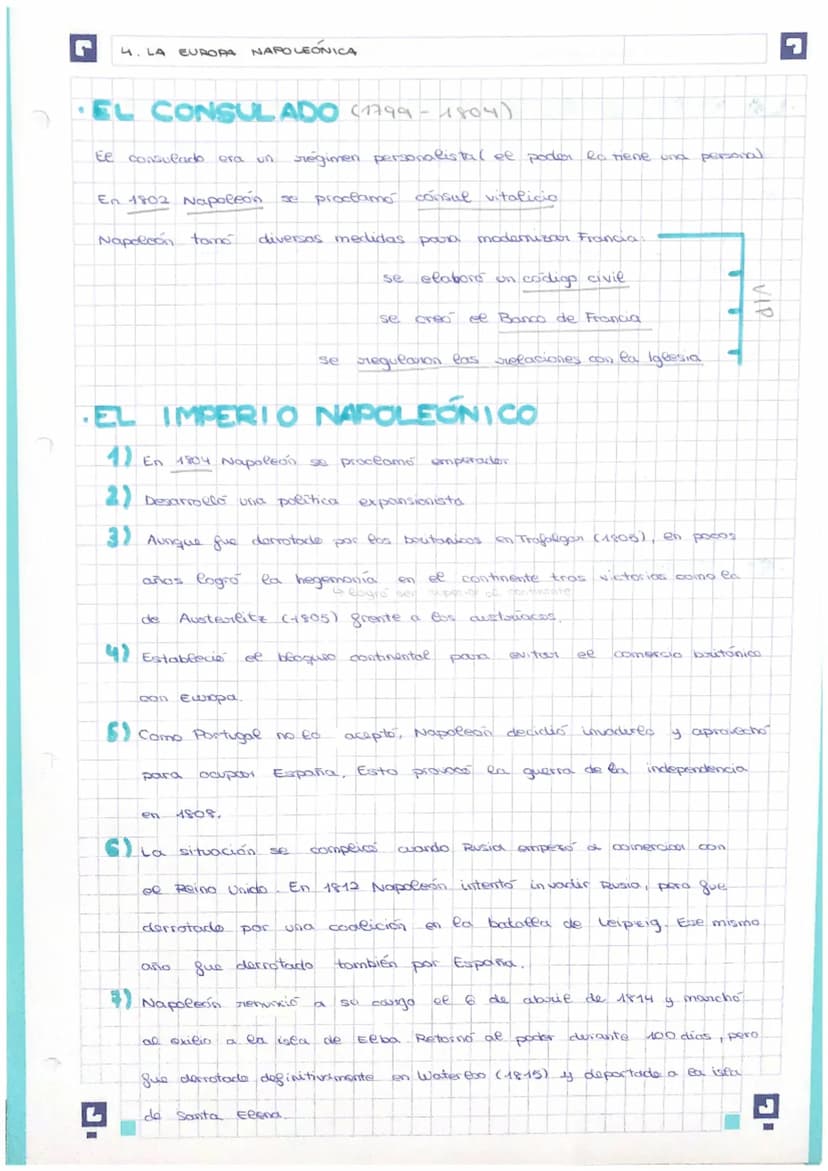 4. LA EUROPA NAPOLEÓNICA
· EL CONSULADO (1799-1804)
El consulado era un régimen personalista ( el poder lo tiene una persona)
En 1802 Napoleón se proclamó cónsul vitalicio
Napoleón tomó diversas medidas para modernizar Francia:
se elaboró un código civil
se creó el Banco de Francia
se regularon las relaciones con la Iglesia
VIP
· EL IMPERIO NAPOLEÓNICO
1) En 1804 Napoleón se proclamó emperador
2) Desarrolló una política expansionista
3) Aunque fue derrotado por los britanicos en Trafalgar (1805), en pocos
años logró la hegemonía en el continente tras victorias como la
↳ logró ser superior al continente
de Austerlitz (1805) frente a los austriacos.
4) Estableció el bloqueo continental para evitar el comercio británico
con Europa.
5) Como Portugal no lo aceptó, Napoleón decidió invadirlo y aprovechó
para ocupar España. Esto provocó la guerra de la independencia
en 1808.
6) La situación se complicó cuando Rusia empezó a comerciar con
el Reino Unido. En 1812 Napoleón intentó invadir Rusia, pero fue
derrotado por una coalición en la batalla de Leipzig. Ese mismo
año fue derrotado también por España.
7) Napoleón renunció a su cargo el 6 de abril de 1814 y marchó
al exilio a la isla de Elba. Retornó al poder durante 100 días, pero
fue derrotado definitivamente en Waterloo (1815) y deportado a la isla
de Santa Elena.